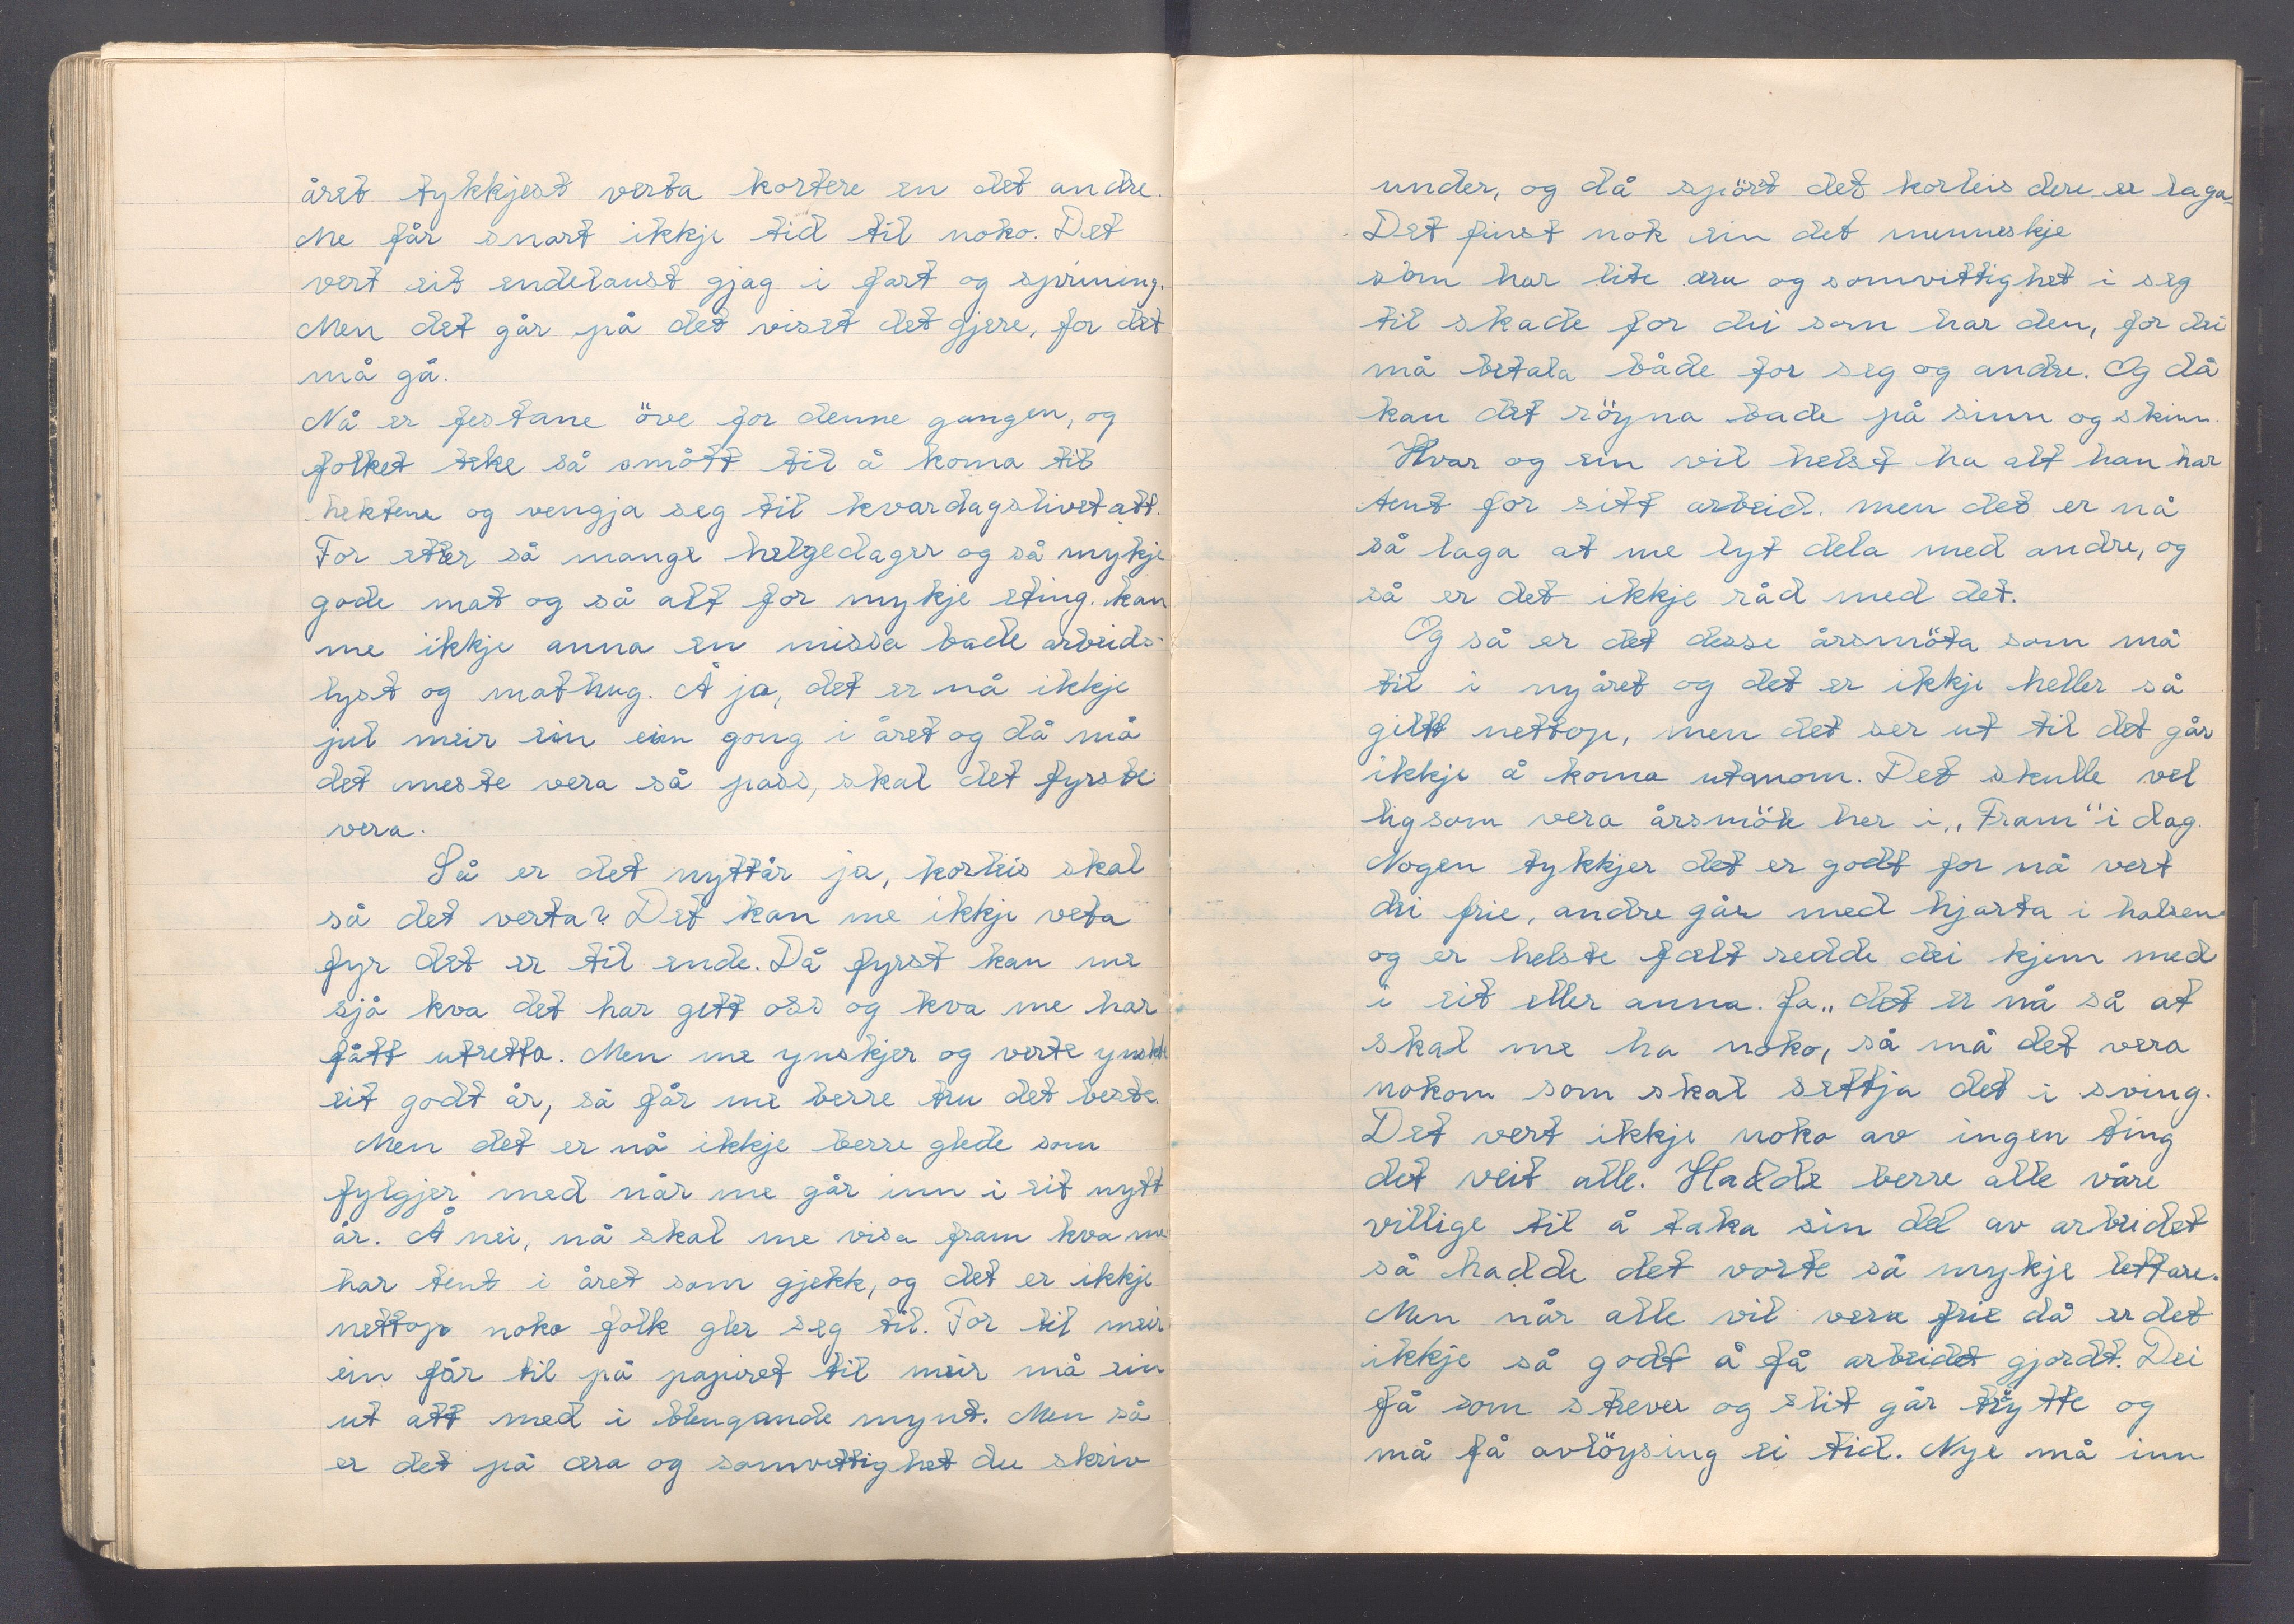 året tykkjest verta kortere en det andre.
Me får snart ikkje tid til noko. Det
vert eit endelaust gjag i fart og sprining.
Men det går på det viset det gjere, for det
må gå.
Nå er festane öve for denne gangen, og
folket teke så smått til å koma til
hektene og vengja seg til kvardagslivet att.
For etter så mange helgedager og så mykje
gode mat og så alt for mykje eting. kan
me ikkje anna en missa bade arbeids-
lyst og mathug. Å ja, det er nå ikkje
jul meir ein ein gong i året og då må
det meste vera så pass, skal det fyrste
vera.
Så er det nyttår ja, korleis skal
så det verta? Det kan me ikkje veta
fyr det er til ende. Då fyrst kan me
sjå kva det har gett oss og kva me har
fått utretta. Men me ynskjer og verte ynskte
eit godt år, så får me berre tru det beste.
Men det er nå ikkje berre glede som
fylgjer med når me går inn i eit nytt
år. Å nei, nå skal me visa fram kva me
har tent i året som gjekk, og det er ikkje
nettop noko folk gler seg til. For til meir
ein får til på papiret til meir må ein
ut att med i klengande mynt. Men så
er det på æra og samvittighet du skriv
under, og då spört det korleis dere er laga
Det finst nok ein det menneskje
som har lite æru og somvittighet i seg
til skade for dei som har den, for dei
må betala både for seg og andre. Og då
kan det röyna bade på sinn og skinn.
Hvar og ein vil helst ha alt han har
tent for sitt arbeid. men det er nå
så laga at me lyt dela med andre, og
så er det ikkje råd med det.
Og så er det desse årsmöta som må
til i nyåret og det er ikkje heller så
gilt nettop, men det ser ut til det går
ikkje å koma utanom. Det skulle vel
ligsom vera årsmöte her i „Fram" i dag.
Nogen tykkjer det er godt for nå vert
dei frie, andre går med hjarta i halsen
og er helste fælt redde dei kjem med
i eit eller anna. Ja„ det er nå så at
skal me ha noko, så må det vera
nokon som skal settja det i sving.
Det vert ikkje noko av ingen ting
det veit alle. Hadde berre alle våre
villige til å taka sin del av arbeidet
så hadde det vorte så mykje lettare.
Men når alle vil vera frie då er det
ikkje så godt å få arbeidet gjordt. Dei
få som strever og slit går trytte og
må få avlöysing ei tid. Nye må inn